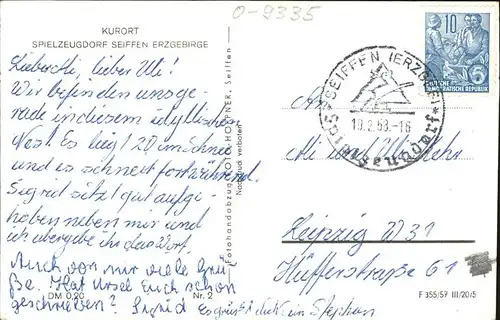 O-9335
KURORT
SPIELZEUGDORF SEIFFEN ERZGEBIRGE
lieber Uli!
Wir befinden uns ge-
rade in diesem idyllischen
Nest. Es liegt 20 cm Schnee
und es schneit fortwährend.
Sigrid sitzt gut aufge-
hoben neben mir und
ich übergebe ihr das Wort.
Auch von mir viele Grü-
ße. Hat Ursel Euch schon
geschrieben? Sigrid es grüßt Dich Stephan
DM 0,20 Nr. 2
Fotohandabzug FOTO-HÖPPNER, Seiffen
Nachdruck verboten
10
DEUTSCHE
DEMOKRATISCHE REPUBLIK
SEIFFEN (ERZGEB)
19.2.63.-16
Spielzeugdorf
An
Uli und
Leipzig W31
Hüfferstraße 61
F 355/57 III/20/5